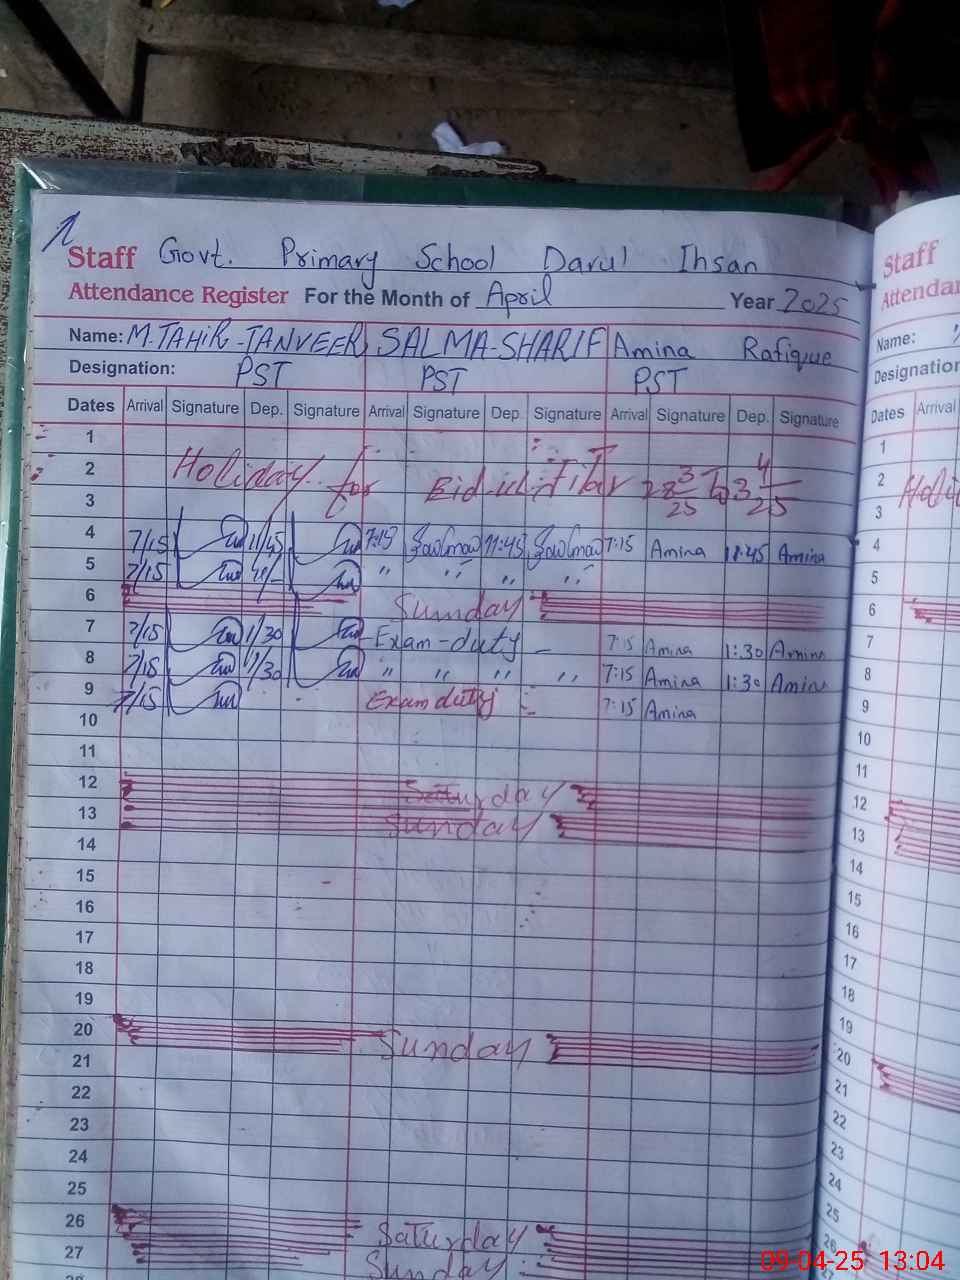 1
Staff Govt. Primary School Darul Ihsan
Attendance Register For the Month of April Year 2025
Name: M.TAHIR-TANVEER SALMA-SHARIF Amina Rafique
Designation: PST PST PST
Dates Arrival Signature Dep. Signature Arrival Signature Dep. Signature Arrival Signature Dep. Signature
1
2 Holiday for Eid-ul-Fitar 28 3/25 To 3 4/25
3
4 7/15 11/45 7:15 11:45 7:15 Amina 11:45 Amina
5 7/15 " " " "
6 Sunday
7 7/15 1/30 Exam-duty - 7:15 Amina 1:30 Amina
8 7/15 1/30 " " " " 7:15 Amina 1:30 Amina
9 7/15 Exam duty 7:15 Amina
10
11
12 Saturday
13 Sunday
14
15
16
17
18
19
20 Sunday
21
22
23
24
25
26 Saturday
27 Sunday
28
Staff
Attenda
Name:
Designation
Dates Arrival
1
2 Holi
3
4
5
6
7
8
9
10
11
12
13
14
15
16
17
18
19
20
21
22
23
24
25
26
09-04-25 13:04